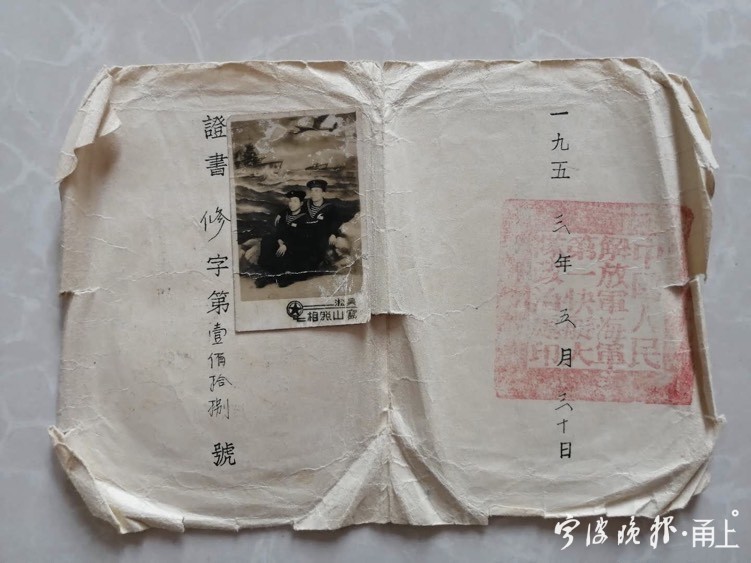 證書修字第壹佰拾捌號
吳淞
寶山照相
一九五三年五月三十日
中國人民
解放軍海軍
第一快艇大
宁波晚报·甬上